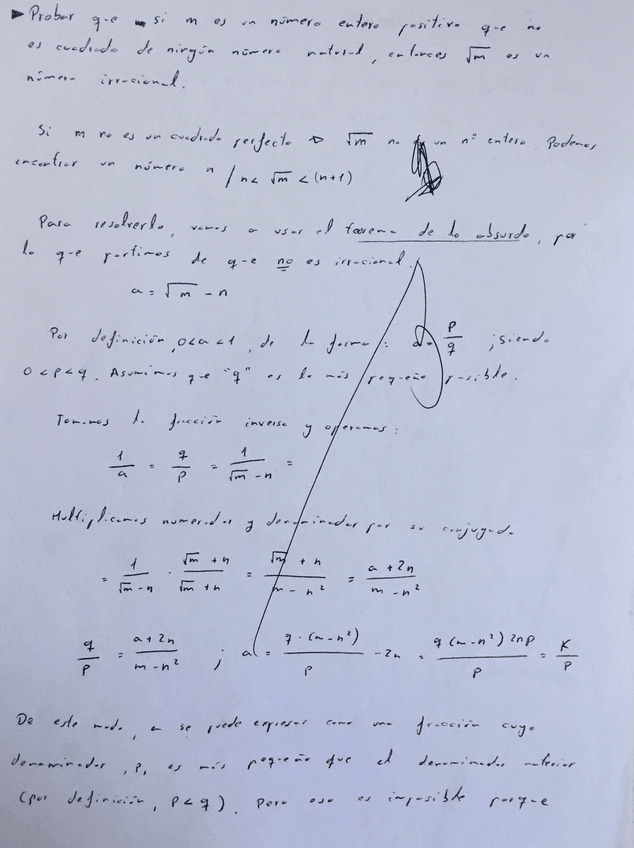 ▶ Probar que si m es un número entero positivo que no
es cuadrado de ningún número natural, entonces √m es un
número irracional.
Si m no es un cuadrado perfecto ⇒ √m no es un nº entero. Podemos
encontrar un número n / n < √m < (n+1)
Para resolverlo, vamos a usar el teorema de lo absurdo, por
lo que partimos de que no es irracional.
a = √m - n
Por definición, 0<a<1, de la forma: a = p/q ; siendo
0<p<q. Asumimos que "q" es lo más pequeño posible.
Tomamos la fracción inversa y operamos:
1/a = q/p = 1/(√m - n) =
Multiplicamos numerador y denominador por su conjugado
= 1/(√m - n) · (√m + n)/(√m + n) = (√m + n)/(m - n²) = (a + 2n)/(m - n²)
q/p = (a + 2n)/(m - n²) ; a = q·(m - n²)/p - 2n = q(m - n²) 2np/p = K/p
De este modo, a se puede expresar como una fracción cuyo
denominador, p, es más pequeño que el denominador anterior
(por definición, p<q). Pero eso es imposible porque